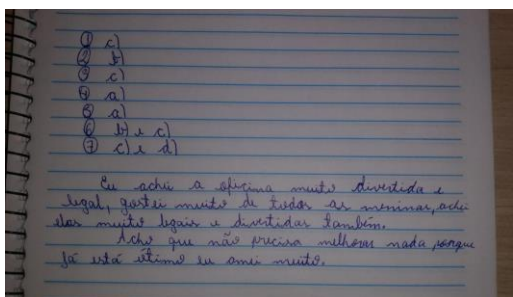 ① c)
② b)
③ c)
④ a)
⑤ a)
⑥ b) e c)
⑦ c) e d)
Eu achei a oficina muito divertida e
legal, gostei muito de todas as meninas, achei
elas muito legais e divertidas também.
Acho que não precisa melhorar nada porque
já está ótimo eu amei muito.